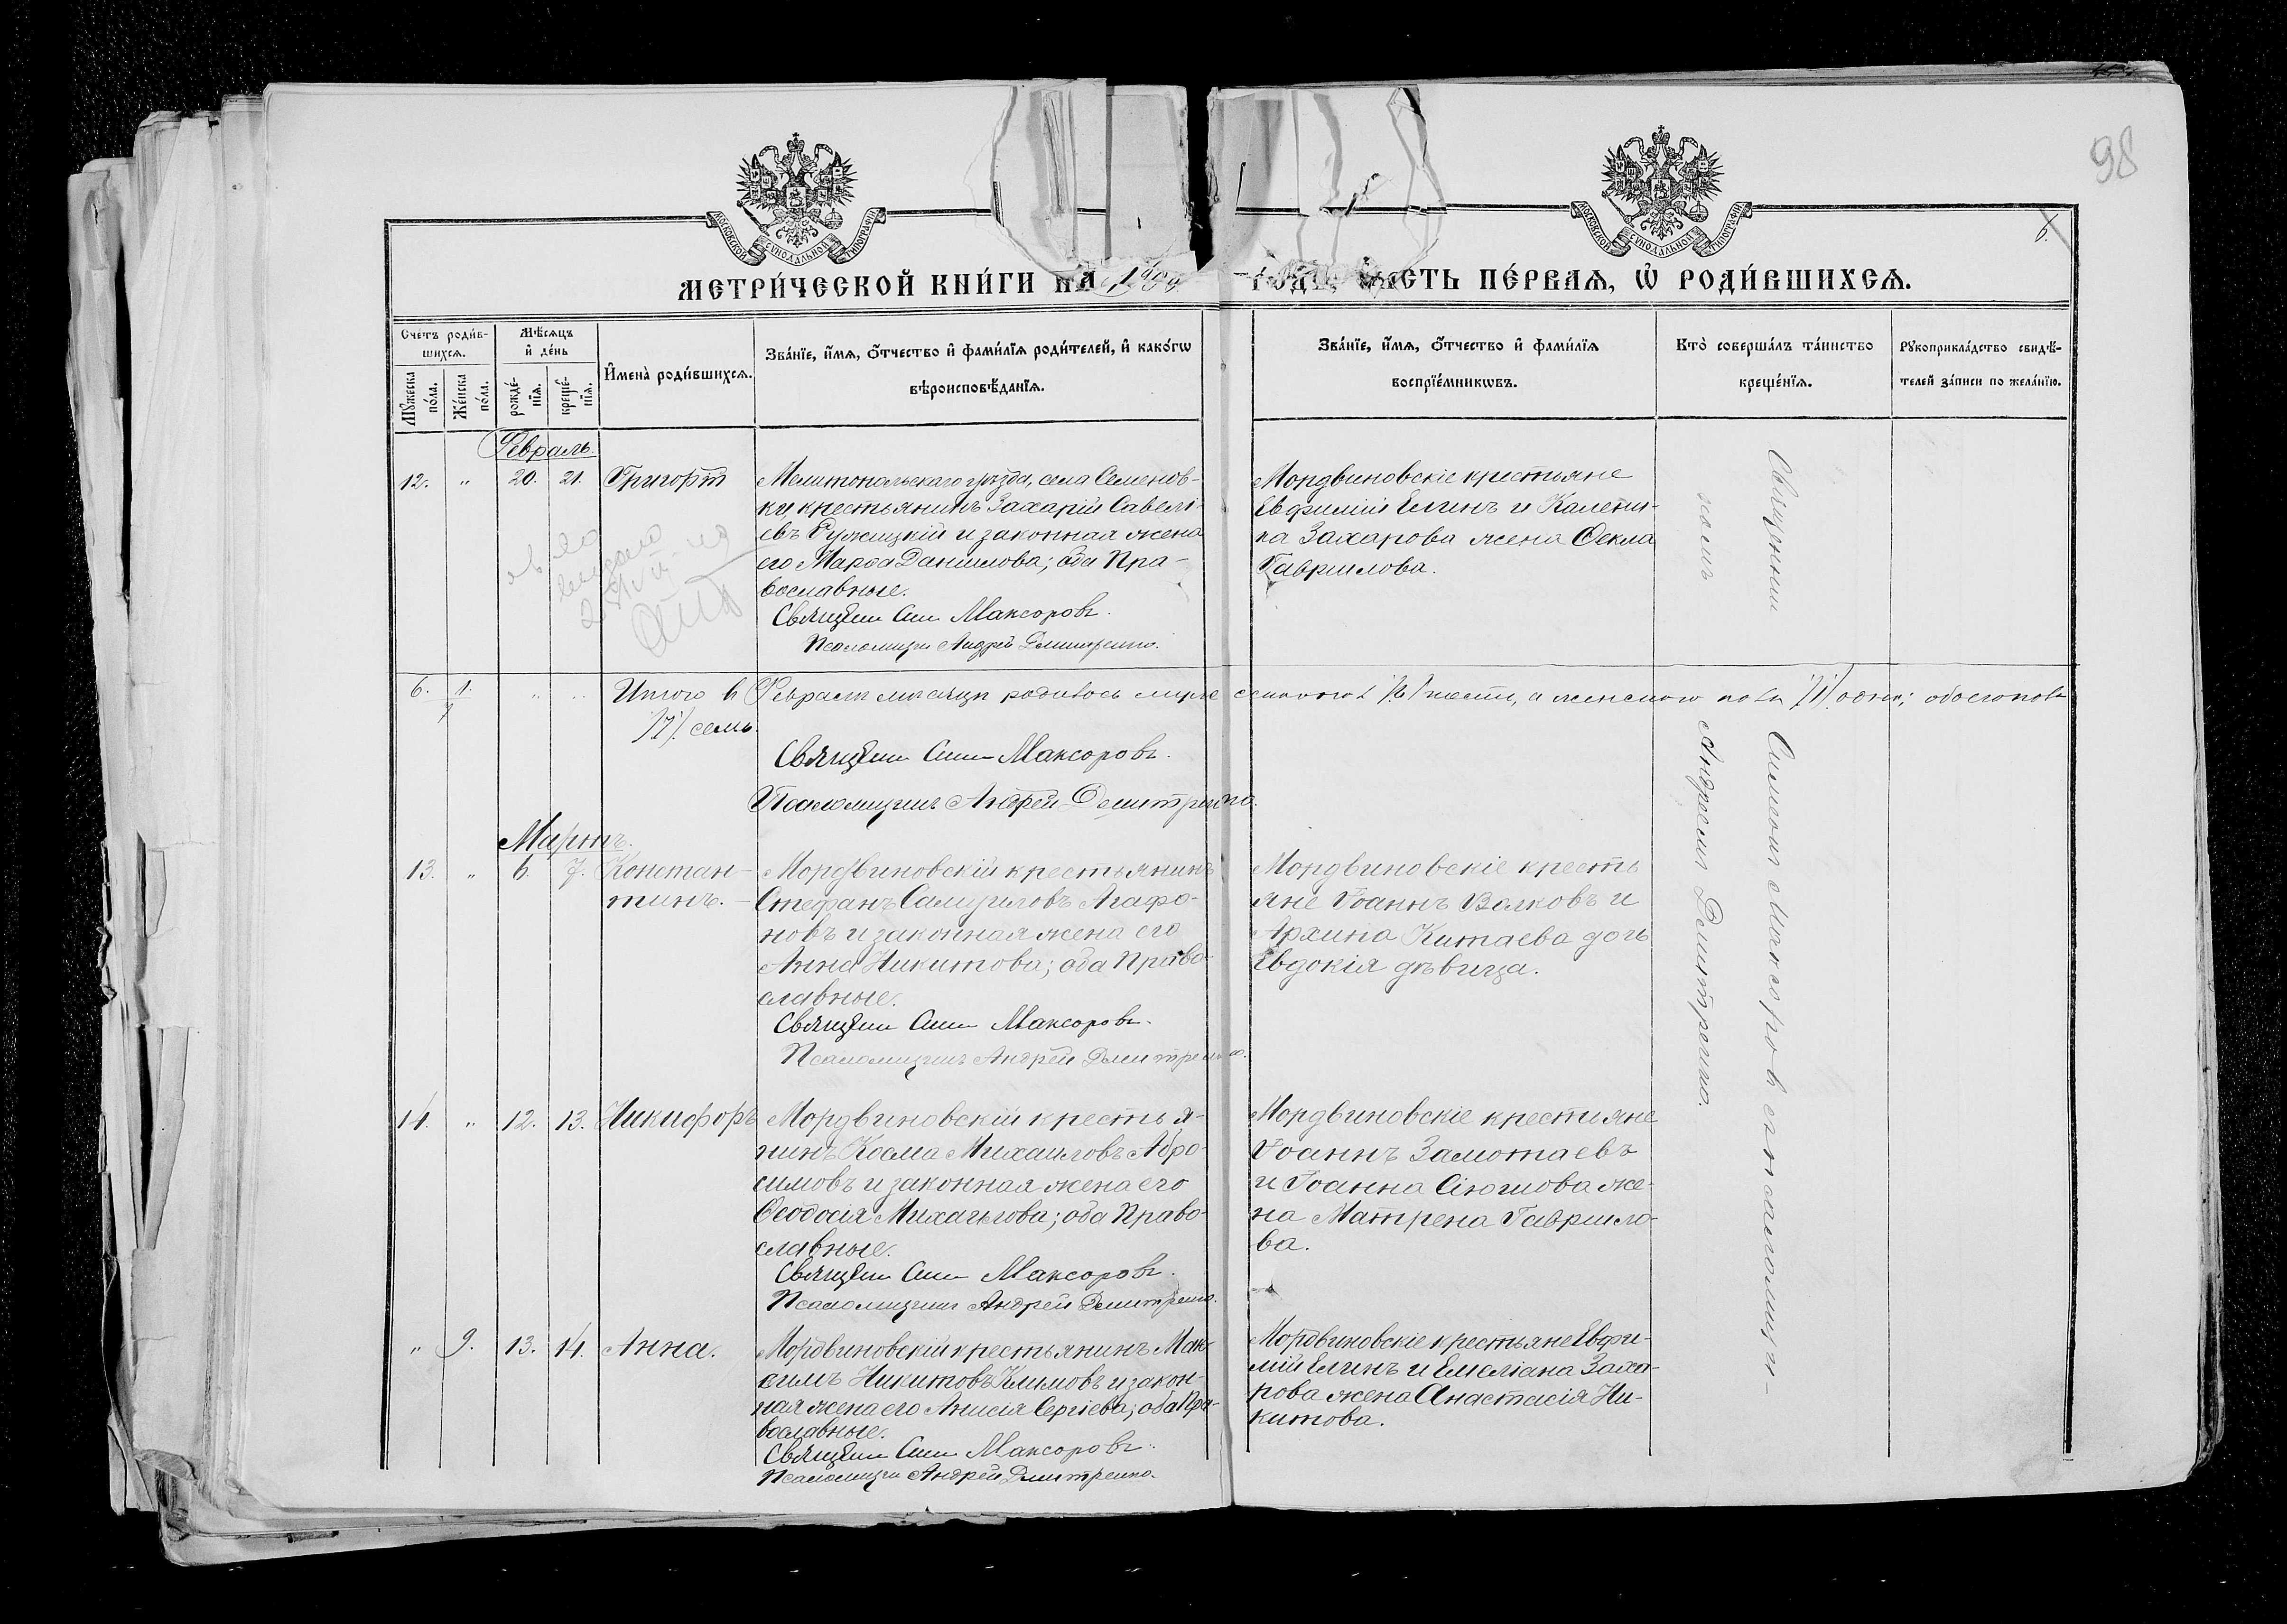 98
МОСКОВСКОЙ СѴНОДАЛЬНОЙ ТИПОГРАФІИ
МОСКОВСКОЙ СѴНОДАЛЬНОЙ ТИПОГРАФІИ
6.
МЕТРИ́ЧЕСКОЙ КНИ́ГИ НА 1900
ГОДЪ, ЧАСТЬ ПЕ́РВАЯ, Ѿ РОДИ́ВШИХСЯ.
Счетъ роди́в-
шихся.
Мꙋ́жеска по́ла.
Же́нска по́ла.
Мѣ́сяцъ
и҆ де́нь
рожде́-
нїя.
креще́-
нїя.
И҆мена̀ роди́вшихся.
Зва́нїе, и҆́мя, ѻ҆́тчество и҆ фами́лїя роди́телей, и҆ како́гѡ
вѣроисповѣ́данїя.
Зва́нїе, и҆́мя, ѻ҆́тчество и҆ фами́лїя
воспрїе́мникѡвъ.
Кто̀ соверша́лъ та́инство
креще́нїя.
Рꙋкоприкла́дство свидѣ́-
телей за́писи по жела́нїю.
Февраль.
12. " 20. 21. Григорій
Мелитопольскаго уѣзда, села Семенов-
ки, крестьянинъ Захарій Савелі-
евъ Ружицкій и законная жена
его Марѳа Данилова; оба Пра-
вославные.
Священ Сим Максоровъ.
Псаломщ Андрей Дмитренко.
Мордвиновскіе крестьяне
Евфимій Елинъ и Калетин-
ка Захарова жена Ѳекла
Гаврилова.
6. 1. " " Итого в Февралѣ мѣсяцѣ родилось мужескаго /6/ шесть, а женскаго пола /1/ одна; обоего пола
7
/7/ семь.
Священ Сим Максоровъ.
Псаломщикъ Андрей Дмитренко.
Мартъ.
13. " 6. 7. Констан-
тинъ.
Мордвиновскій крестьянинъ
Стефанъ Самуиловъ Агафо-
новъ и законная жена его
Анна Никитова; оба Право-
славные.
Священ Сим Максоровъ.
Псаломщикъ Андрей Дмитренко.
Мордвиновскіе кресть
яне Іоаннъ Волковъ и
Архипа Китаева дочь
Евдокія дѣвица.
14. " 12. 13. Никифоръ
Мордвиновскій крестья-
нинъ Косма Михаиловъ Абро-
симовъ и законная жена его
Ѳеодосія Михаилова; оба Право-
славные.
Священ Сим Максоровъ.
Псаломщикъ Андрей Дмитренко.
Мордвиновскіе крестьяне
Іоаннъ Замотаевъ
и Іоанна жe-
на Матрена Гаврило-
ва.
" 9. 13. 14. Анна.
Мордвиновскій крестьянинъ Мак-
симъ Никитовъ Климовъ и закон-
ная жена его Анисія Сергіева; оба Пра-
вославные.
Священ Сим Максоровъ.
Псаломщ Андрей Дмитренко.
Мордвиновскіе крестьяне Евфи-
мій Елинъ и Емеліана Заха-
рова жена Анастасія Ни-
китова.
Священникъ Симеонъ Максоровъ съ псаломщи-
комъ Андреемъ Дмитренко.